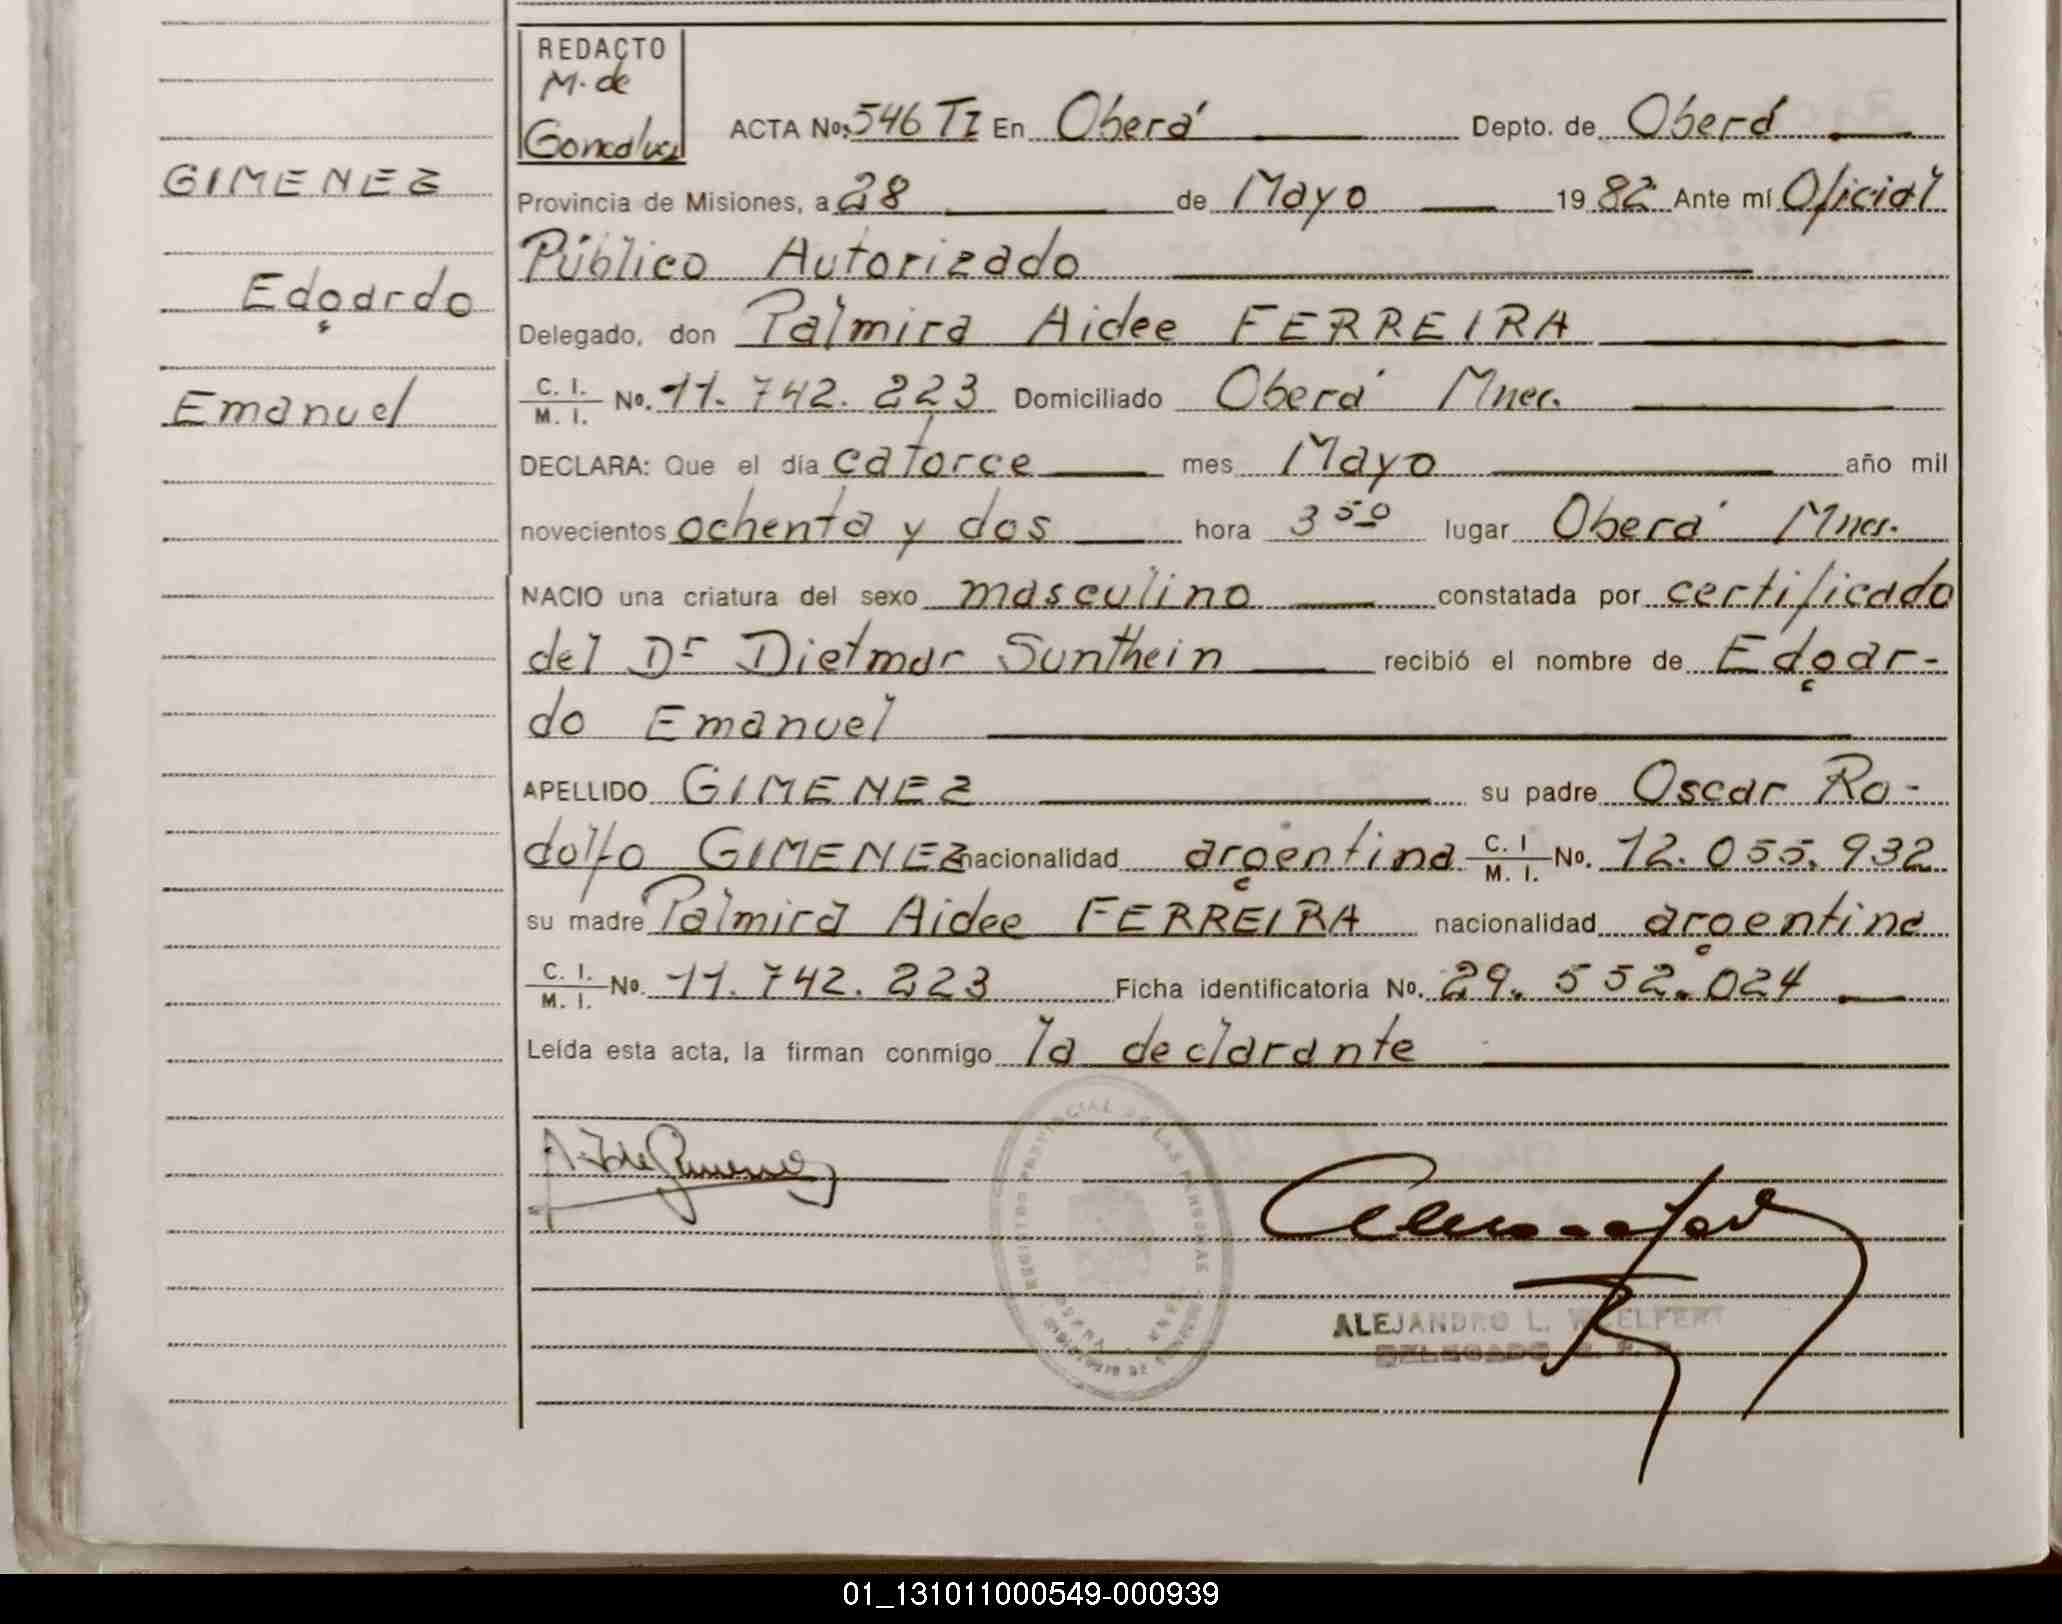 REDACTO
M. de
Goncalvez
ACTA No. 546 TI En Oberá Depto. de Oberá
GIMENEZ
Provincia de Misiones, a 28 de Mayo 1982 Ante mí Oficial
Público Autorizado
Edgardo
Delegado, don Palmira Aidee FERREIRA
Emanuel
C. I. / M. I. No. 11.742.223 Domiciliado Oberá Mnes.
DECLARA: Que el día catorce mes Mayo año mil
novecientos ochenta y dos hora 3 50 lugar Oberá Mnes.
NACIO una criatura del sexo masculino constatada por certificado
del Dr Dietmar Sunthein recibió el nombre de Edgar-
do Emanuel
APELLIDO GIMENEZ su padre Oscar Ro-
dolfo GIMENEZ nacionalidad argentina C. I / M. I. No. 12.055.932
su madre Palmira Aidee FERREIRA nacionalidad argentina
C. I. / M. I. No. 11.742.223 Ficha identificatoria No. 29.552.024
Leída esta acta, la firman conmigo la declarante
REGISTRO PROVINCIAL DE LAS PERSONAS
ALEJANDRO L. WELFERT
DELEGADO R. P. P.
01_131011000549-000939